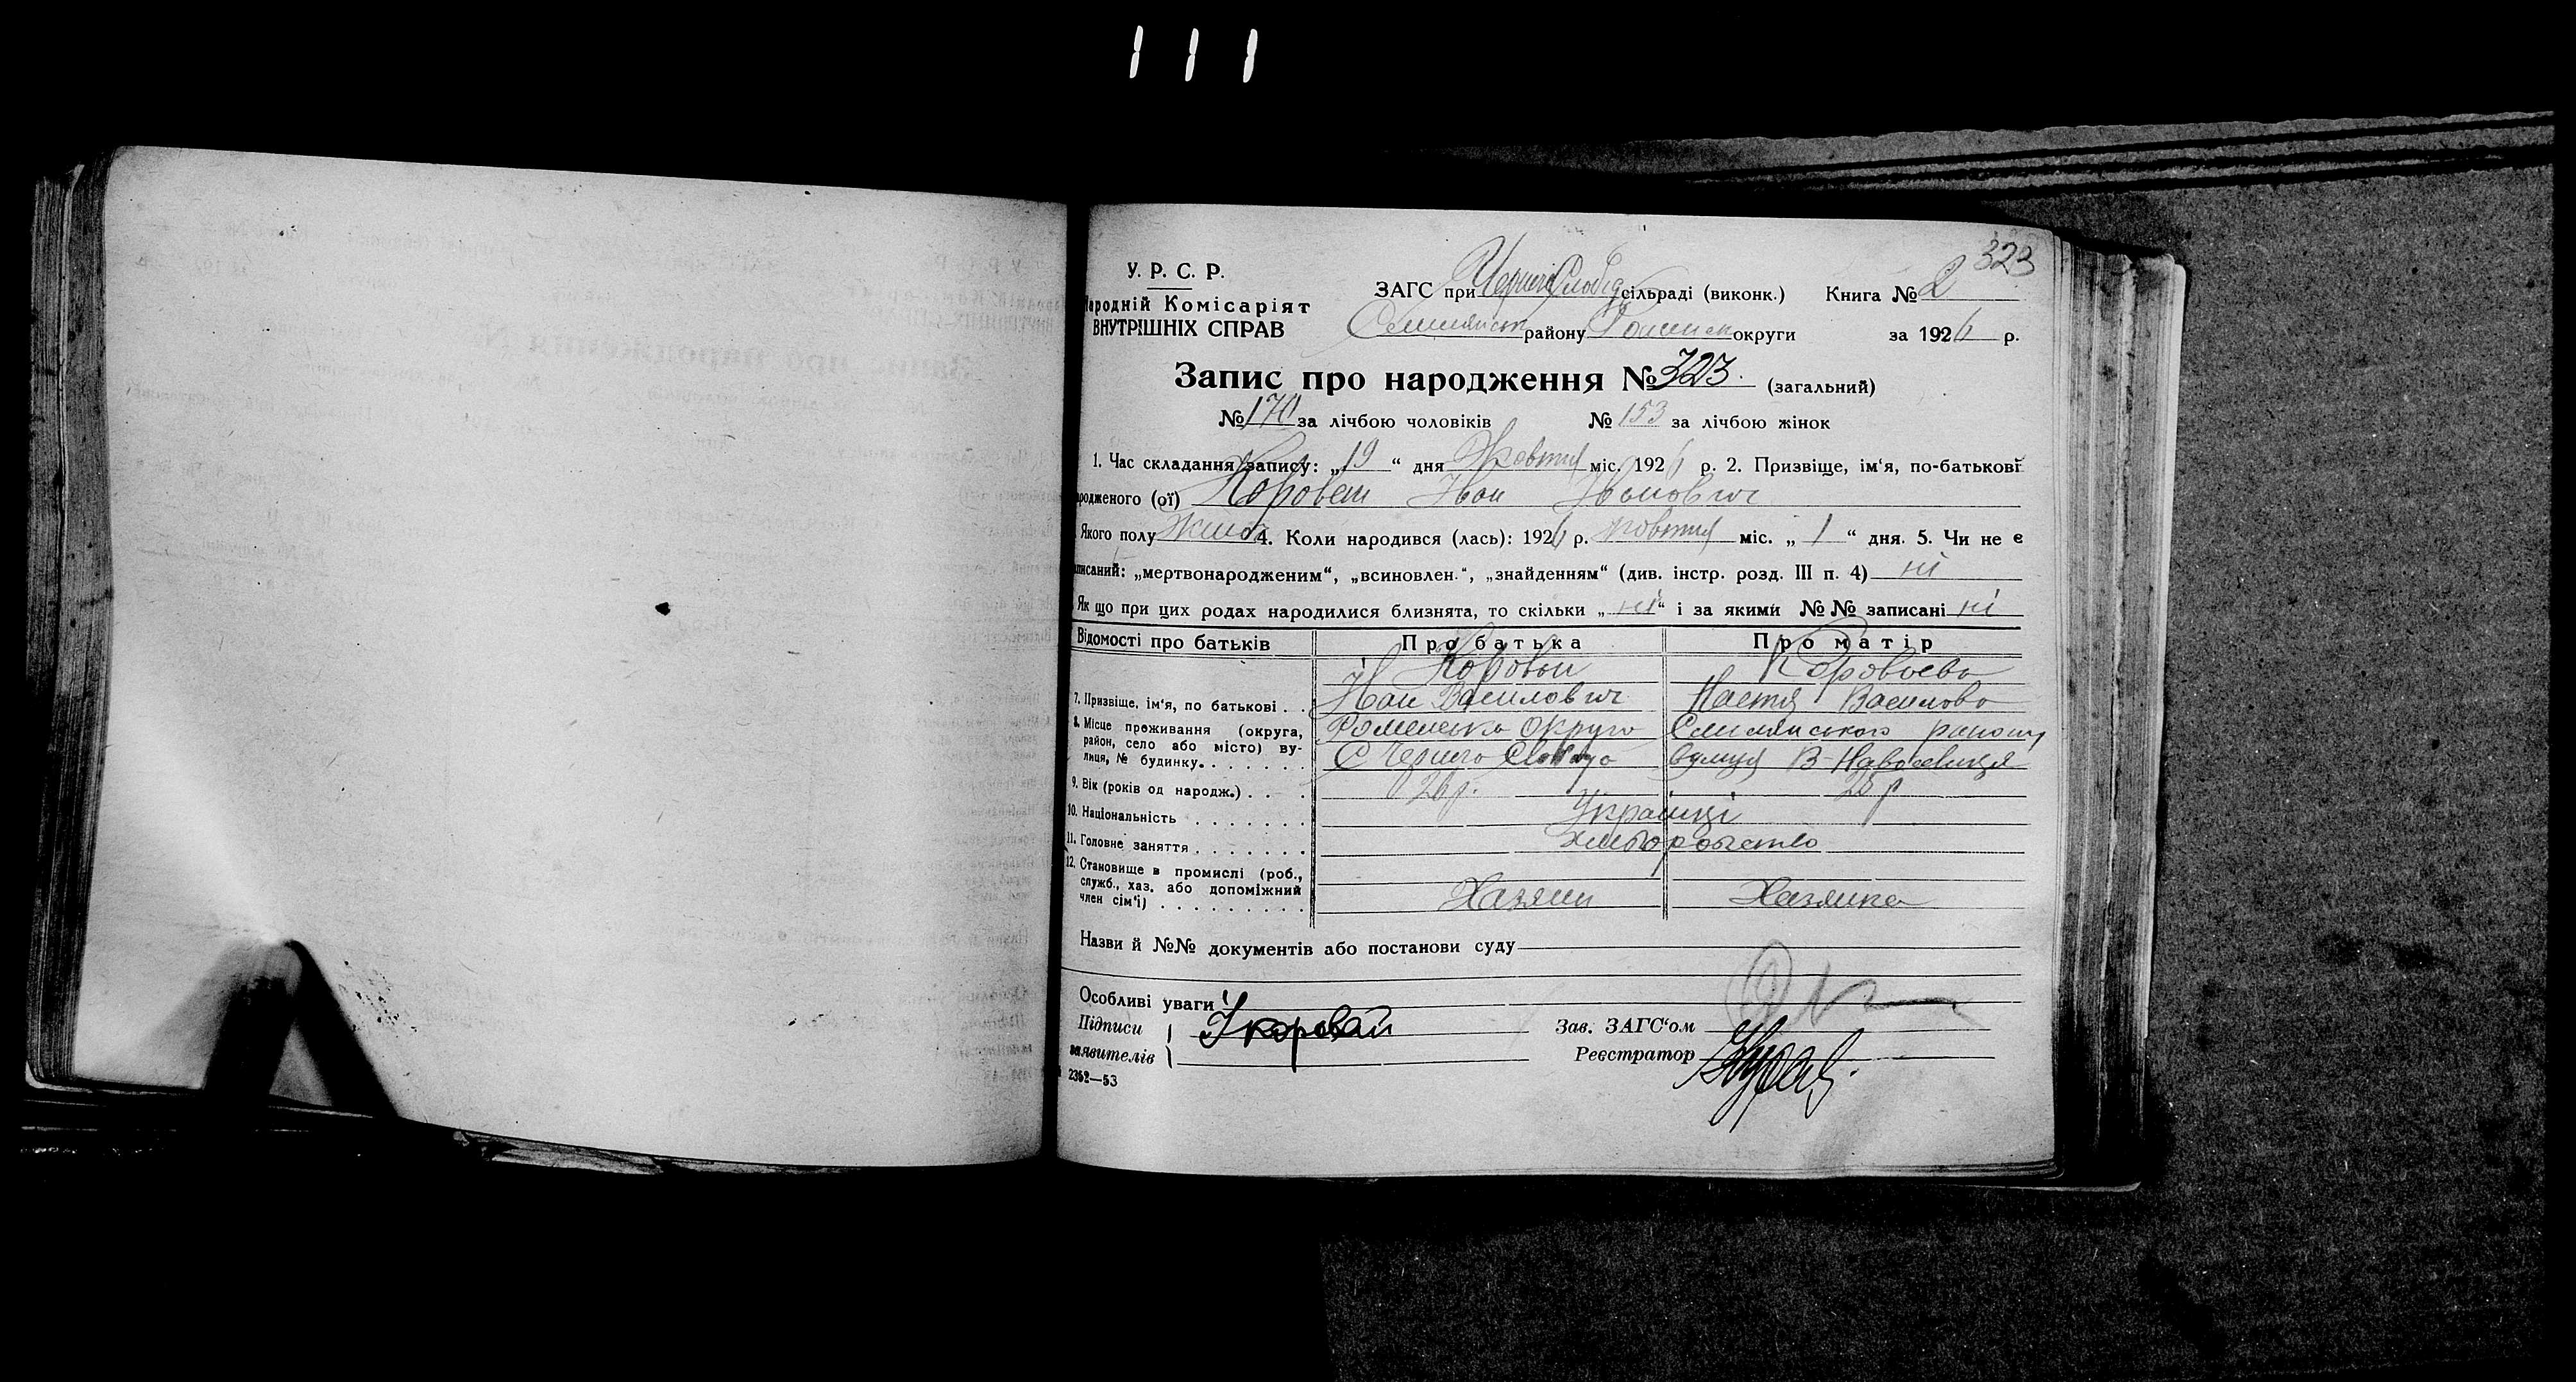 111
323
У. Р. С. Р.
Народній Комісаріят
ВНУТРІШНІХ СПРАВ
ЗАГС при Чернеч Слобід сільраді (виконк.) Книга № 2
району Роменськ округи за 1926 р.
Запис про народження № 323. (загальний)
№ 170 за лічбою чоловіків № 153 за лічбою жінок
1. Час складання запису: „ 19 “ дня Жовтня міс. 1926 р. 2. Призвіще, ім‘я, по-батькові
родженого (ої) Коровай Іван Іванович
Якого полу 4. Коли народився (лась): 1926 р. жовтня міс. „ 1 “ дня. 5. Чи не є
писаний: „мертвонародженим“, „всиновлен.“, „знайденням“ (див. інстр. розд. III п. 4) ні
Як що при цих родах народилися близнята, то скільки „ ні “ і за якими №№ записані ні
Відомості про батьків Про батька Про матір
7. Призвіще, ім‘я, по батькові . . Коровай Іван Василович Короваєва Настя Василова
8. Місце проживання (округа, район, село або місто) вулиця, № будинку. Роменська Округа Смілянського району
С Чернеча Слобода вулиця В-Новоселиця
9. Вік (років од народж.) . . . 26 р. 26 р
10. Національність . . . . . . . Українці
11. Головне заняття . . . . . . . хліборобство
12. Становище в промислі (роб., служб., хаз. або допоміжний член сім‘ї) . . . . . . . . . Хазяин Хазяика
Назви й №№ документів або постанови суду
Особливі уваги
Підписи заявителів І Коровай
Зав. ЗАГС‘ом
Реєстратор
2352—53